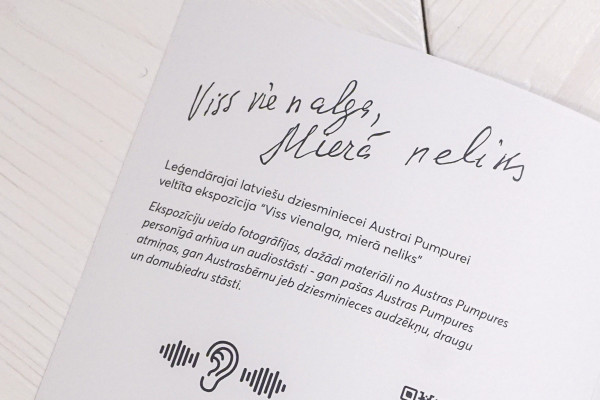 Viss vienalga,
Mierā neliks
Leģendārajai latviešu dziesminiecei Austrai Pumpurei
veltīta ekspozīcija "Viss vienalga, mierā neliks"
Ekspozīciju veido fotogrāfijas, dažādi materiāli no Austras Pumpures
personīgā arhīva un audiostāsti - gan pašas Austras Pumpures
atmiņas, gan Austrasbērnu jeb dziesminieces audzēkņu, draugu
un domubiedru stāsti.